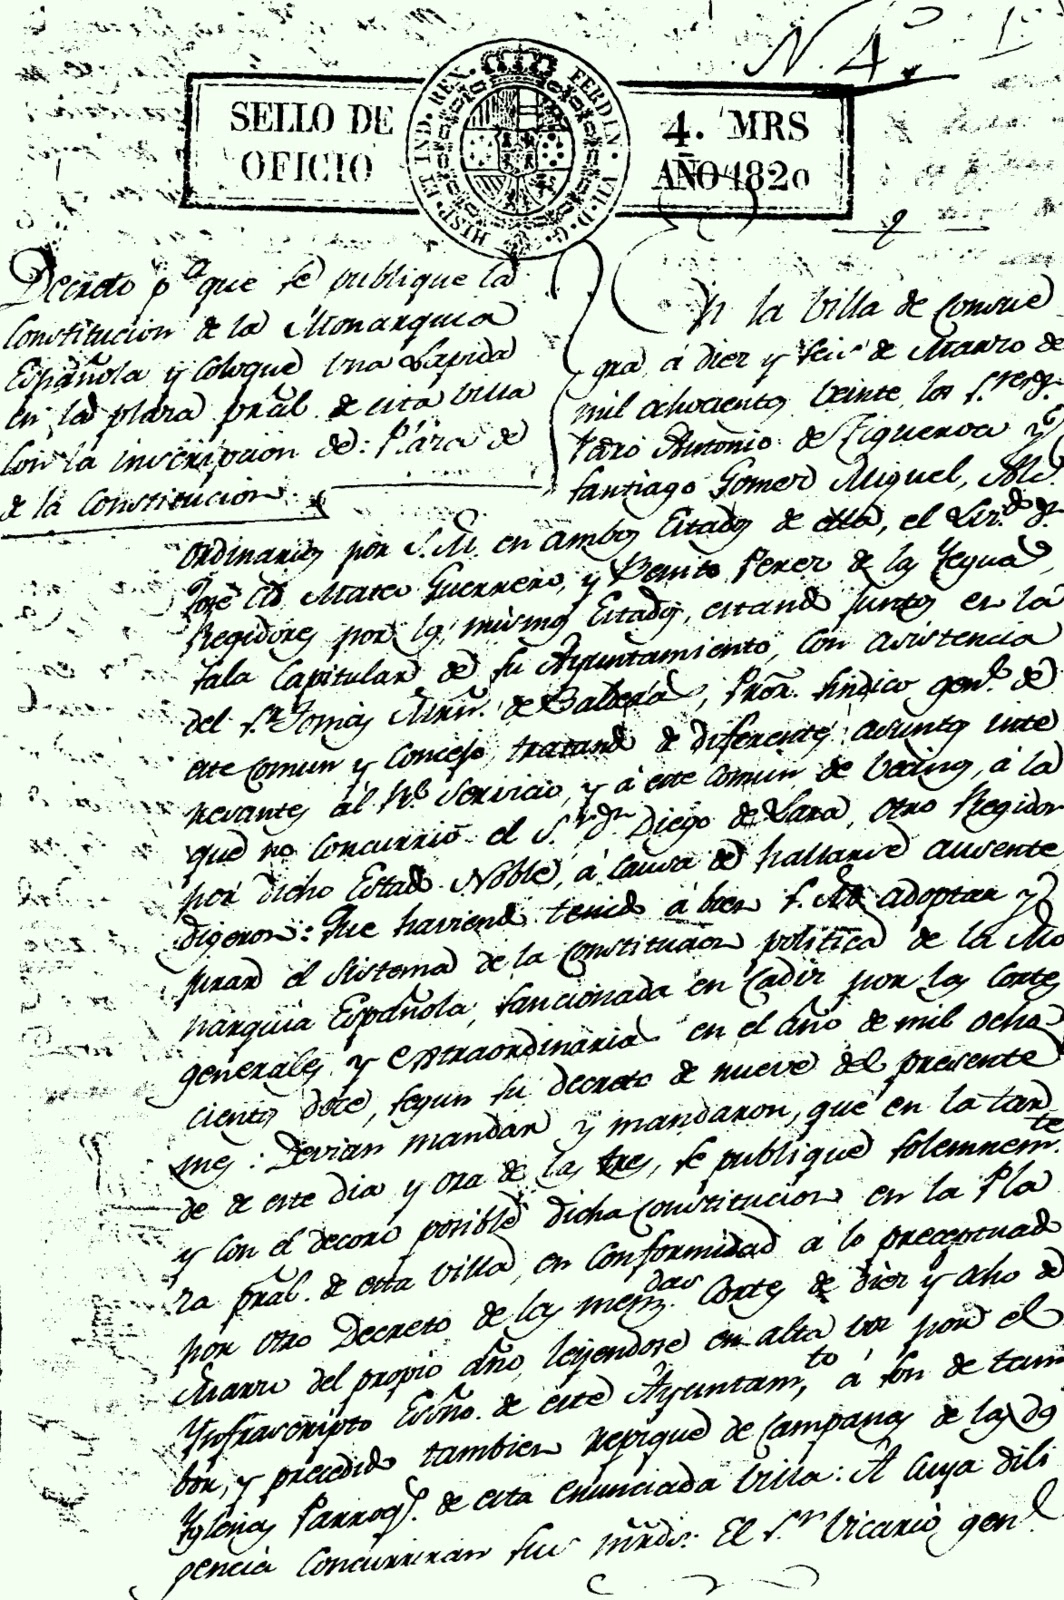 N. 4.º 1.
SELLO DE
OFICIO
HISP. ET IND. REX. FERDIN. VII. D. G.
4. MRS
AÑO 1820
Decreto p.ª que se publique la
Constitucion de la Monarquia
Española y coloque una Lapida
en la plaza prãl. de esta villa
con la inscripcion de: Plaza de
de la Constitucion.
En la Villa de Consue
gra á diez y seis de Marzo de
mil ochocientos veinte los S.res D.n
Pedro Antonio de Figueroa y
Santiago Gomez Miguel, Alc.
ordinarios por S. M. en ambos Estados de ella, el Liz.do D.n
José Cid Mateo Guerrero, y Benito Perez de la Yegua,
Regidores por los mismos Estados, estando juntos en la
Sala Capitular de su Ayuntamiento, con asistencia
del S.r Tomás Mrñ. de Balderã, Prõr. Sindico gen.l de
este comun y Concejo, tratando de diferentes asuntos inte
resantes al R.l Servicio, y á este comun de vecinos, á la
que no concurrio el S.r D.n Diego de Lara, otro Regidor
por dicho Estado Noble, á causa de hallarse ausente
Digeron: Que haviendo tenido á bien S. M. adoptar y
jurar el sistema de la Constitucion politica de la Mo
narquia Española, sancionada en Cadiz por las Cortes
generales y extraordinarias en el año de mil ocho
cientos doce, segun su decreto de nueve del presente
mes: Devian mandar y mandaron, que en la tar
de de este dia y ora de las tres, se publique solemnem.te
y con el decoro posible dicha Constitucion en la Pla
za prãl. de esta villa, en conformidad a lo preceptuado
por otro Decreto de las menz.das Cortes de diez y ocho de
Marzo del propio año, leyendose en alta voz por el
Ynfrascripto Esõño. de este Ayuntam.to, á son de tam
bor, y precedido tambien repique de campanas de las dos
Yglesias Parroq.s de esta enunciada villa: A cuya dili
gencia concurriran sus mrds: El S.r Vicario gen.l